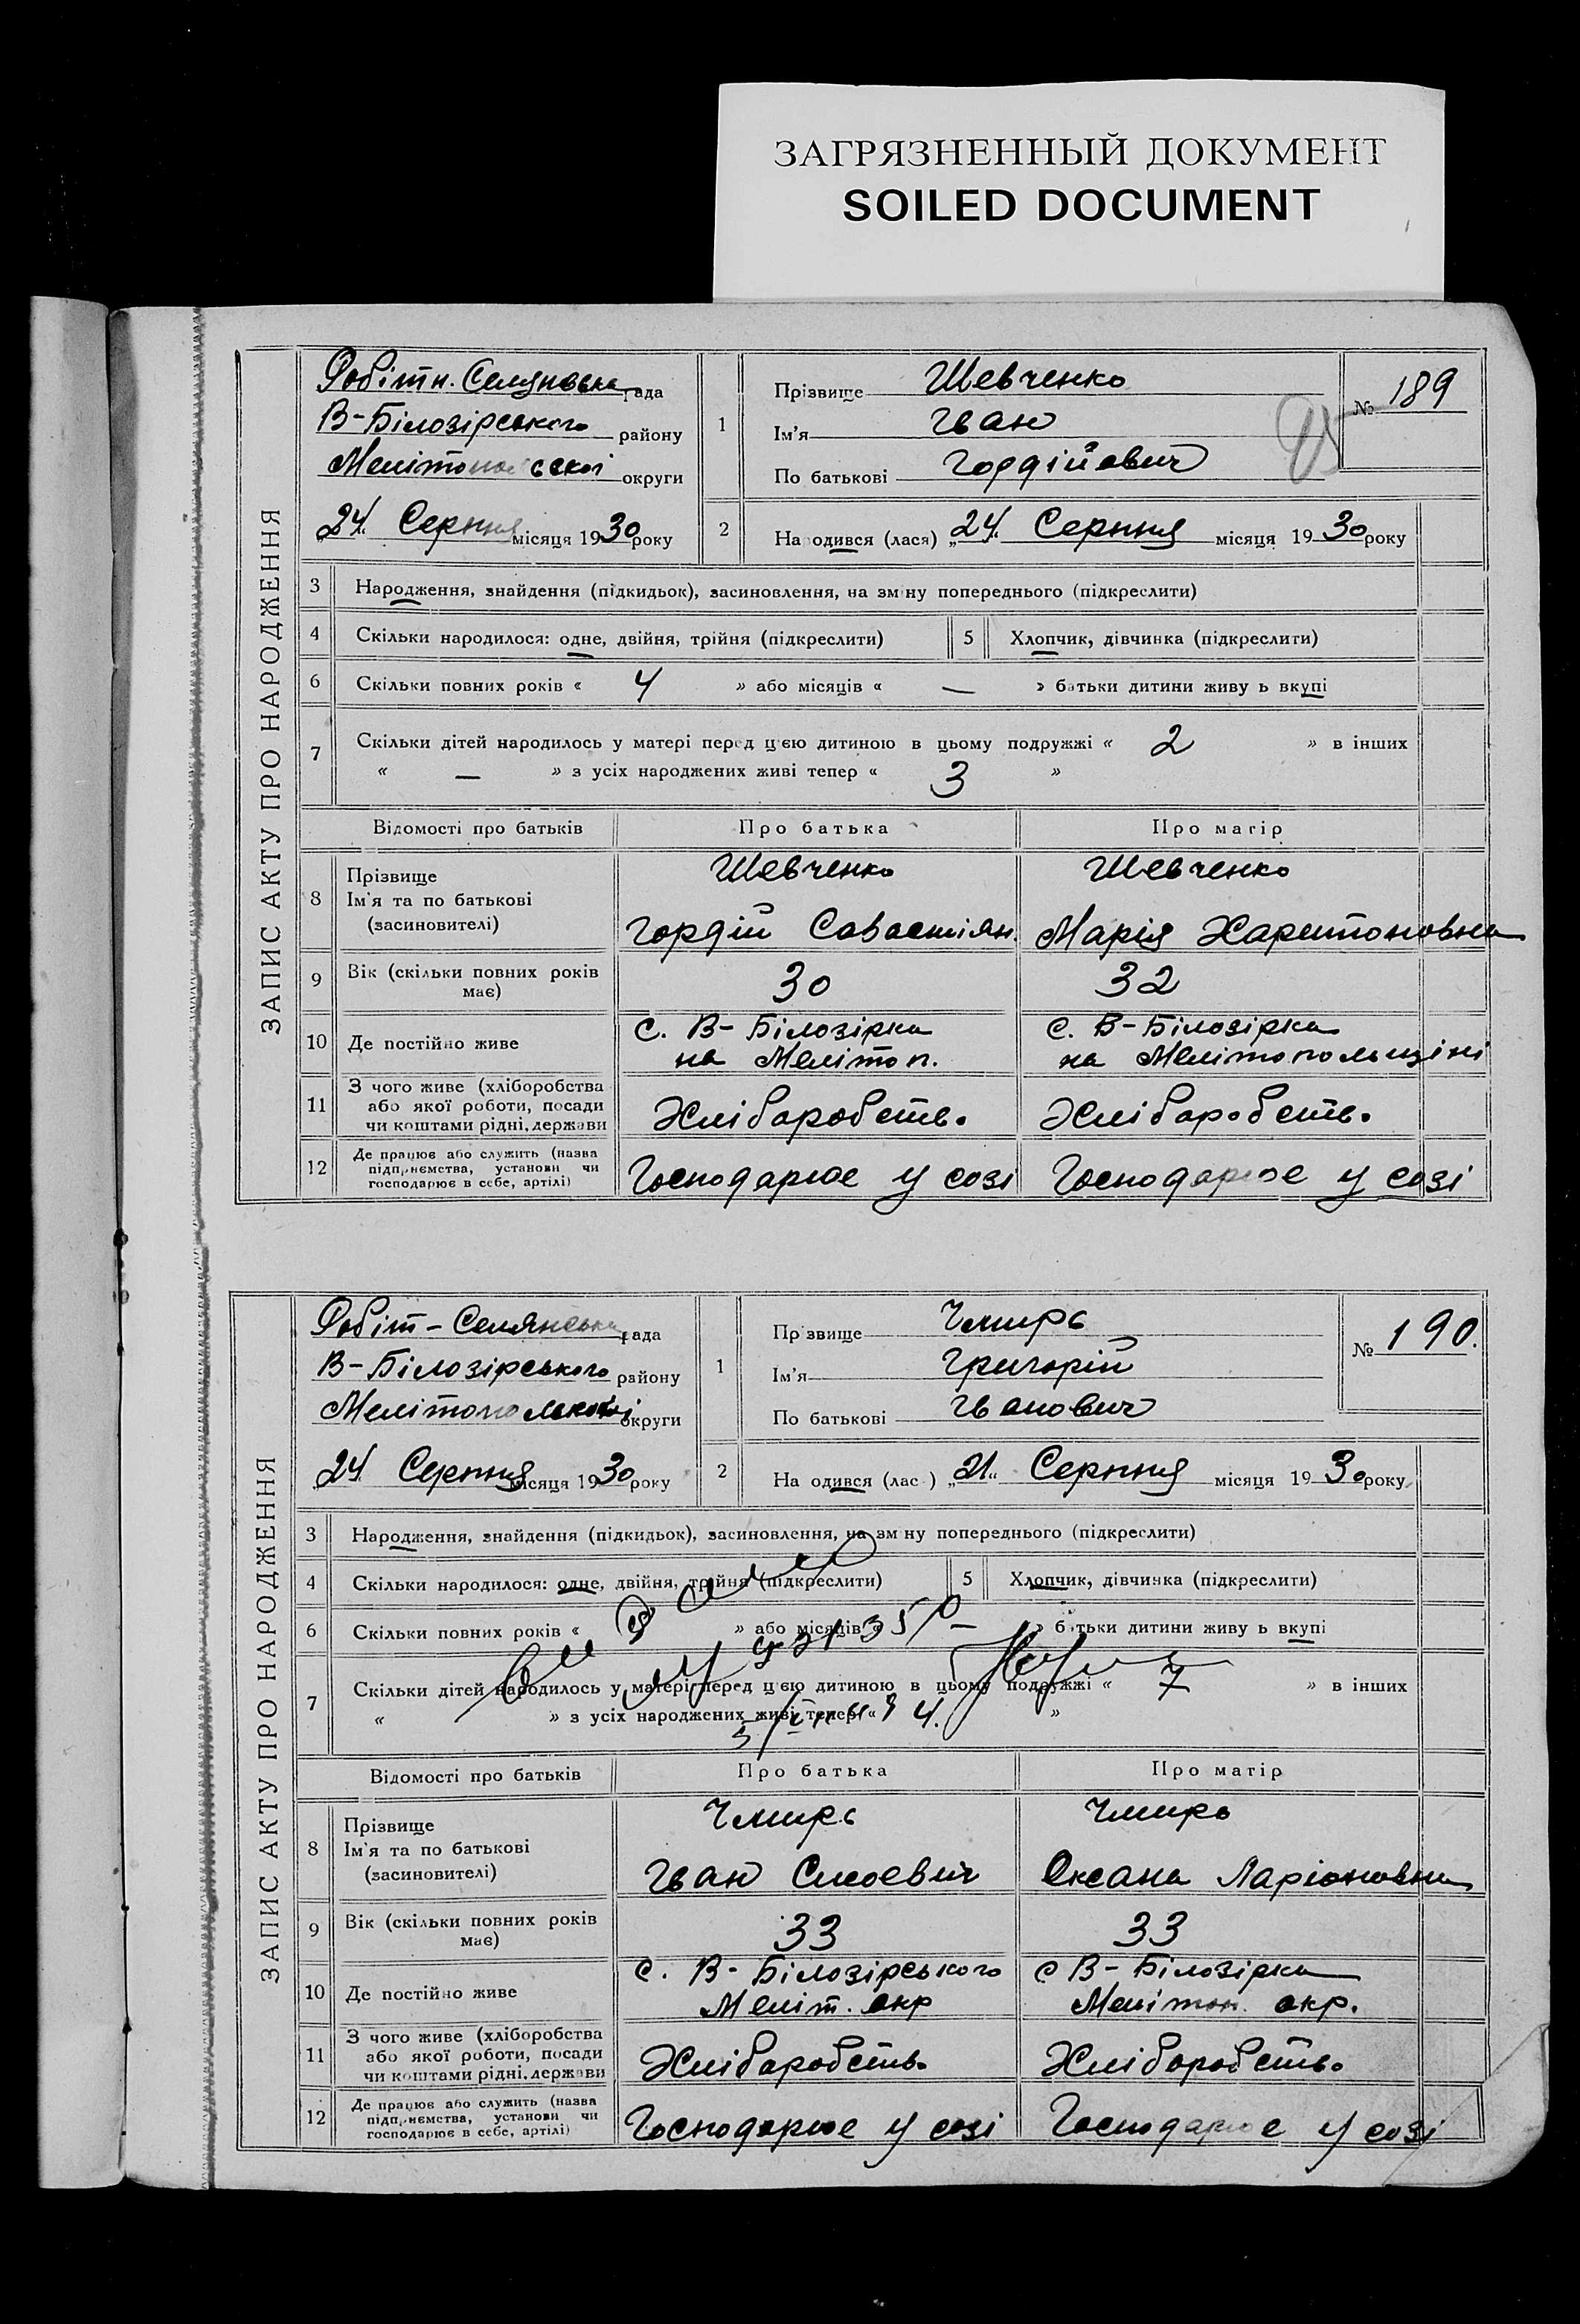 ЗАГРЯЗНЕННЫЙ ДОКУМЕНТ
SOILED DOCUMENT
ЗАПИС АКТУ ПРО НАРОДЖЕННЯ
Робітн. Селянська рада
В-Білозірського району
Мелітопольської округи
„24" Серпня місяця 1930 року
1
Прізвище Шевченко
Ім'я Іван
По батькові Гордійович
№ 189
2
Народився (лася) „24" Серпня місяця 1930 року
3 Народження, знайдення (підкидьок), засиновлення, на зміну попереднього (підкреслити)
4 Скільки народилося: одне, двійня, трійня (підкреслити) 5 Хлопчик, дівчинка (підкреслити)
6 Скільки повних років « 4 » або місяців « — » батьки дитини живуть вкупі
7 Скільки дітей народилось у матері перед цією дитиною в цьому подружжі « 2 » в інших
« — » з усіх народжених живі тепер « 3 »
Відомості про батьків Про батька Про матір
8 Прізвище Ім'я та по батькові (засновителі)
Шевченко Шевченко
Гордій Савастіян. Марія Харитоновна
9 Вік (скільки повних років має) 30 32
10 Де постійно живе
с. В-Білозірка с. В-Білозірка
на Мелітоп. на Мелітопольщіні
11 З чого живе (хліборобства
або якої роботи, посади
чи коштами рідні, держави
Хлібороботв. Хлібороботв.
12 Де працює або служить (назва
підприємства, установи чи
господарює в себе, артілі)
Господарює у созі Господарює у созі
ЗАПИС АКТУ ПРО НАРОДЖЕННЯ
Робіт-Селянська рада
В-Білозірського району
Мелітопольської округи
24 Серпня місяця 1930 року
1
Прізвище Чмирь
Ім'я Григорій
По батькові Іванович
№ 190.
2
Народився (лася) „21" Серпня місяця 1930 року
3 Народження, знайдення (підкидьок), засиновлення, на зміну попереднього (підкреслити)
4 Скільки народилося: одне, двійня, трійня (підкреслити) 5 Хлопчик, дівчинка (підкреслити)
6 Скільки повних років « » або місяців « — » батьки дитини живуть вкупі
7 Скільки дітей народилось у матері перед цією дитиною в цьому подружжі « 7 » в інших
« » з усіх народжених живі тепер « 4. »
Відомості про батьків Про батька Про матір
8 Прізвище
Ім'я та по батькові
(засиновителі)
Чмирь Чмирь
Іван Оксана Ларіоновна
9 Вік (скільки повних років має) 33 33
10 Де постійно живе
с. В-Білозірського с В-Білозірка
Меліт. окр Мелітоп. окр.
11 З чого живе (хліборобства
або якої роботи, посади
чи коштами рідні, держави
Хлібороботв. Хлібороботв.
12 Де працює або служить (назва
підприємства, установи чи
господарює в себе, артілі)
Господарює у созі Господарює у созі